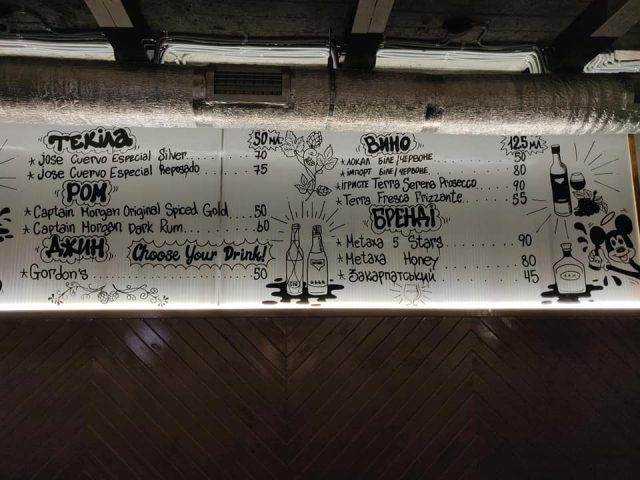 ТЕКІЛА 50 МЛ
* Jose Cuervo Especial Silver 70
* Jose Cuervo Especial Reposado 75
РОМ
* Captain Morgan Original Spiced Gold 50
* Captain Morgan Dark Rum 60
ДЖИН
Choose Your Drink!
* Gordon's 50
ВИНО 125 МЛ
* ЛОКАЛ БІЛЕ/ЧЕРВОНЕ 50
* ІМПОРТ БІЛЕ/ЧЕРВОНЕ 80
* ІГРИСТЕ Terra Serena Prosecco 90
* Terra Fresca Frizzante 55
БРЕНДІ
* Metaxa 5 Stars 90
* Metaxa Honey 80
* Закарпатський 45